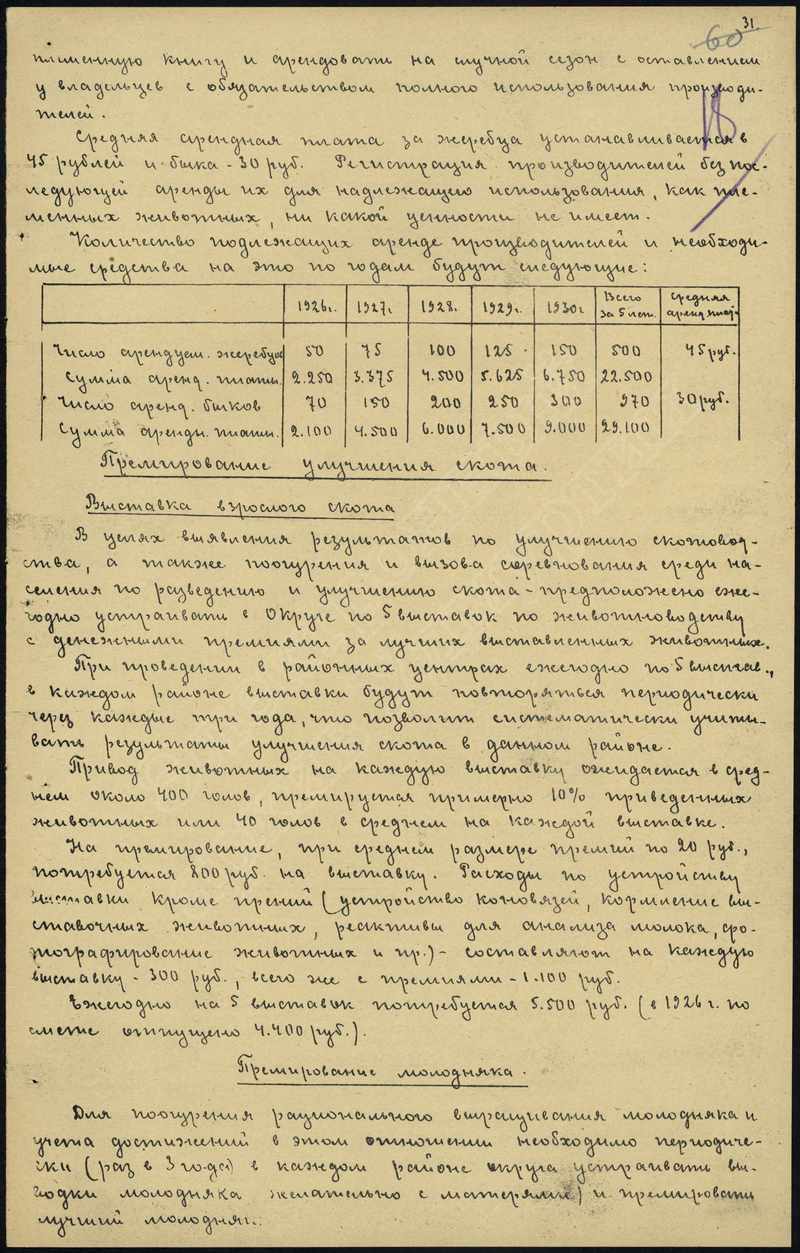 31.
60
племенную книгу и арендовать на случной сезон с оставлением
у владельцев с обязательством полного использования производи-
телей.
Средняя арендная плата за жеребца устанавливается в
45 рублей и быка - 30 руб. Регистрация производителей без пос-
ледующей аренды их для надлежащего использования, как пле-
менных животных, ни какой ценности не имеет.
Количество подлежащих аренде производителей и необходи-
мые средства на это по годам будут следующие:
1926г. 1927г 1928г. 1929г. 1930г Всего за 5 лет. Средняя аренд. плат.
Число арендуем. жеребцов 50 75 100 125 150 500 45 руб.
Сумма аренд. платы. 2.250 3.375 4.500 5.625 6.750 22.500
Число аренд. быков 70 150 200 250 300 970 30 руб.
Сумма арендн. платы. 2.100 4.500 6.000 7.500 9.000 29.100
Премирование улучшения скота.
Выставка взрослого скота
В целях выявления результатов по улучшению скотовод-
ства, а также поощрения и вызова соревнования среди на-
селения по разведению и улучшению скота - предположено еже-
годно устраивать в Округе по 5 выставок по животноводству
с денежными премиями за лучших выставленных животных.
При проведении в районных центрах ежегодно по 5 выстав.,
в каждом районе выставки будут повторяться периодически
через каждые три года, что позволит систематически учиты-
вать результаты улучшения скота в данном районе.
Привод животных на каждую выставку ожидается в сред-
нем около 400 голов, премируется примерно 10% приведенных
животных или 40 голов в среднем на каждой выставке.
На премирование, при среднем размере премий по 20 руб.,
потребуется 800 руб. на выставку. Расходы по устройству
выставки кроме премий (устройство коновязей, кормление вы-
ставочных животных, реактивы для анализа молока, фо-
тографирование животных и пр.) - составляют на каждую
выставку - 300 руб., всего же с премиями - 1.100 руб.
Ежегодно на 5 выставок потребуется 5.500 руб. (в 1926 г. по
смете отпущено 4.400 руб.).
Премирование молодняка.
Для поощрения рационального выращивания молодняка и
учета достижений в этом отношении необходимо периодиче-
ски (раз в 3 года) в каждом районе округа устраивать вы-
водки молодняка желательно с матерями) и премировать
лучший молодняк.